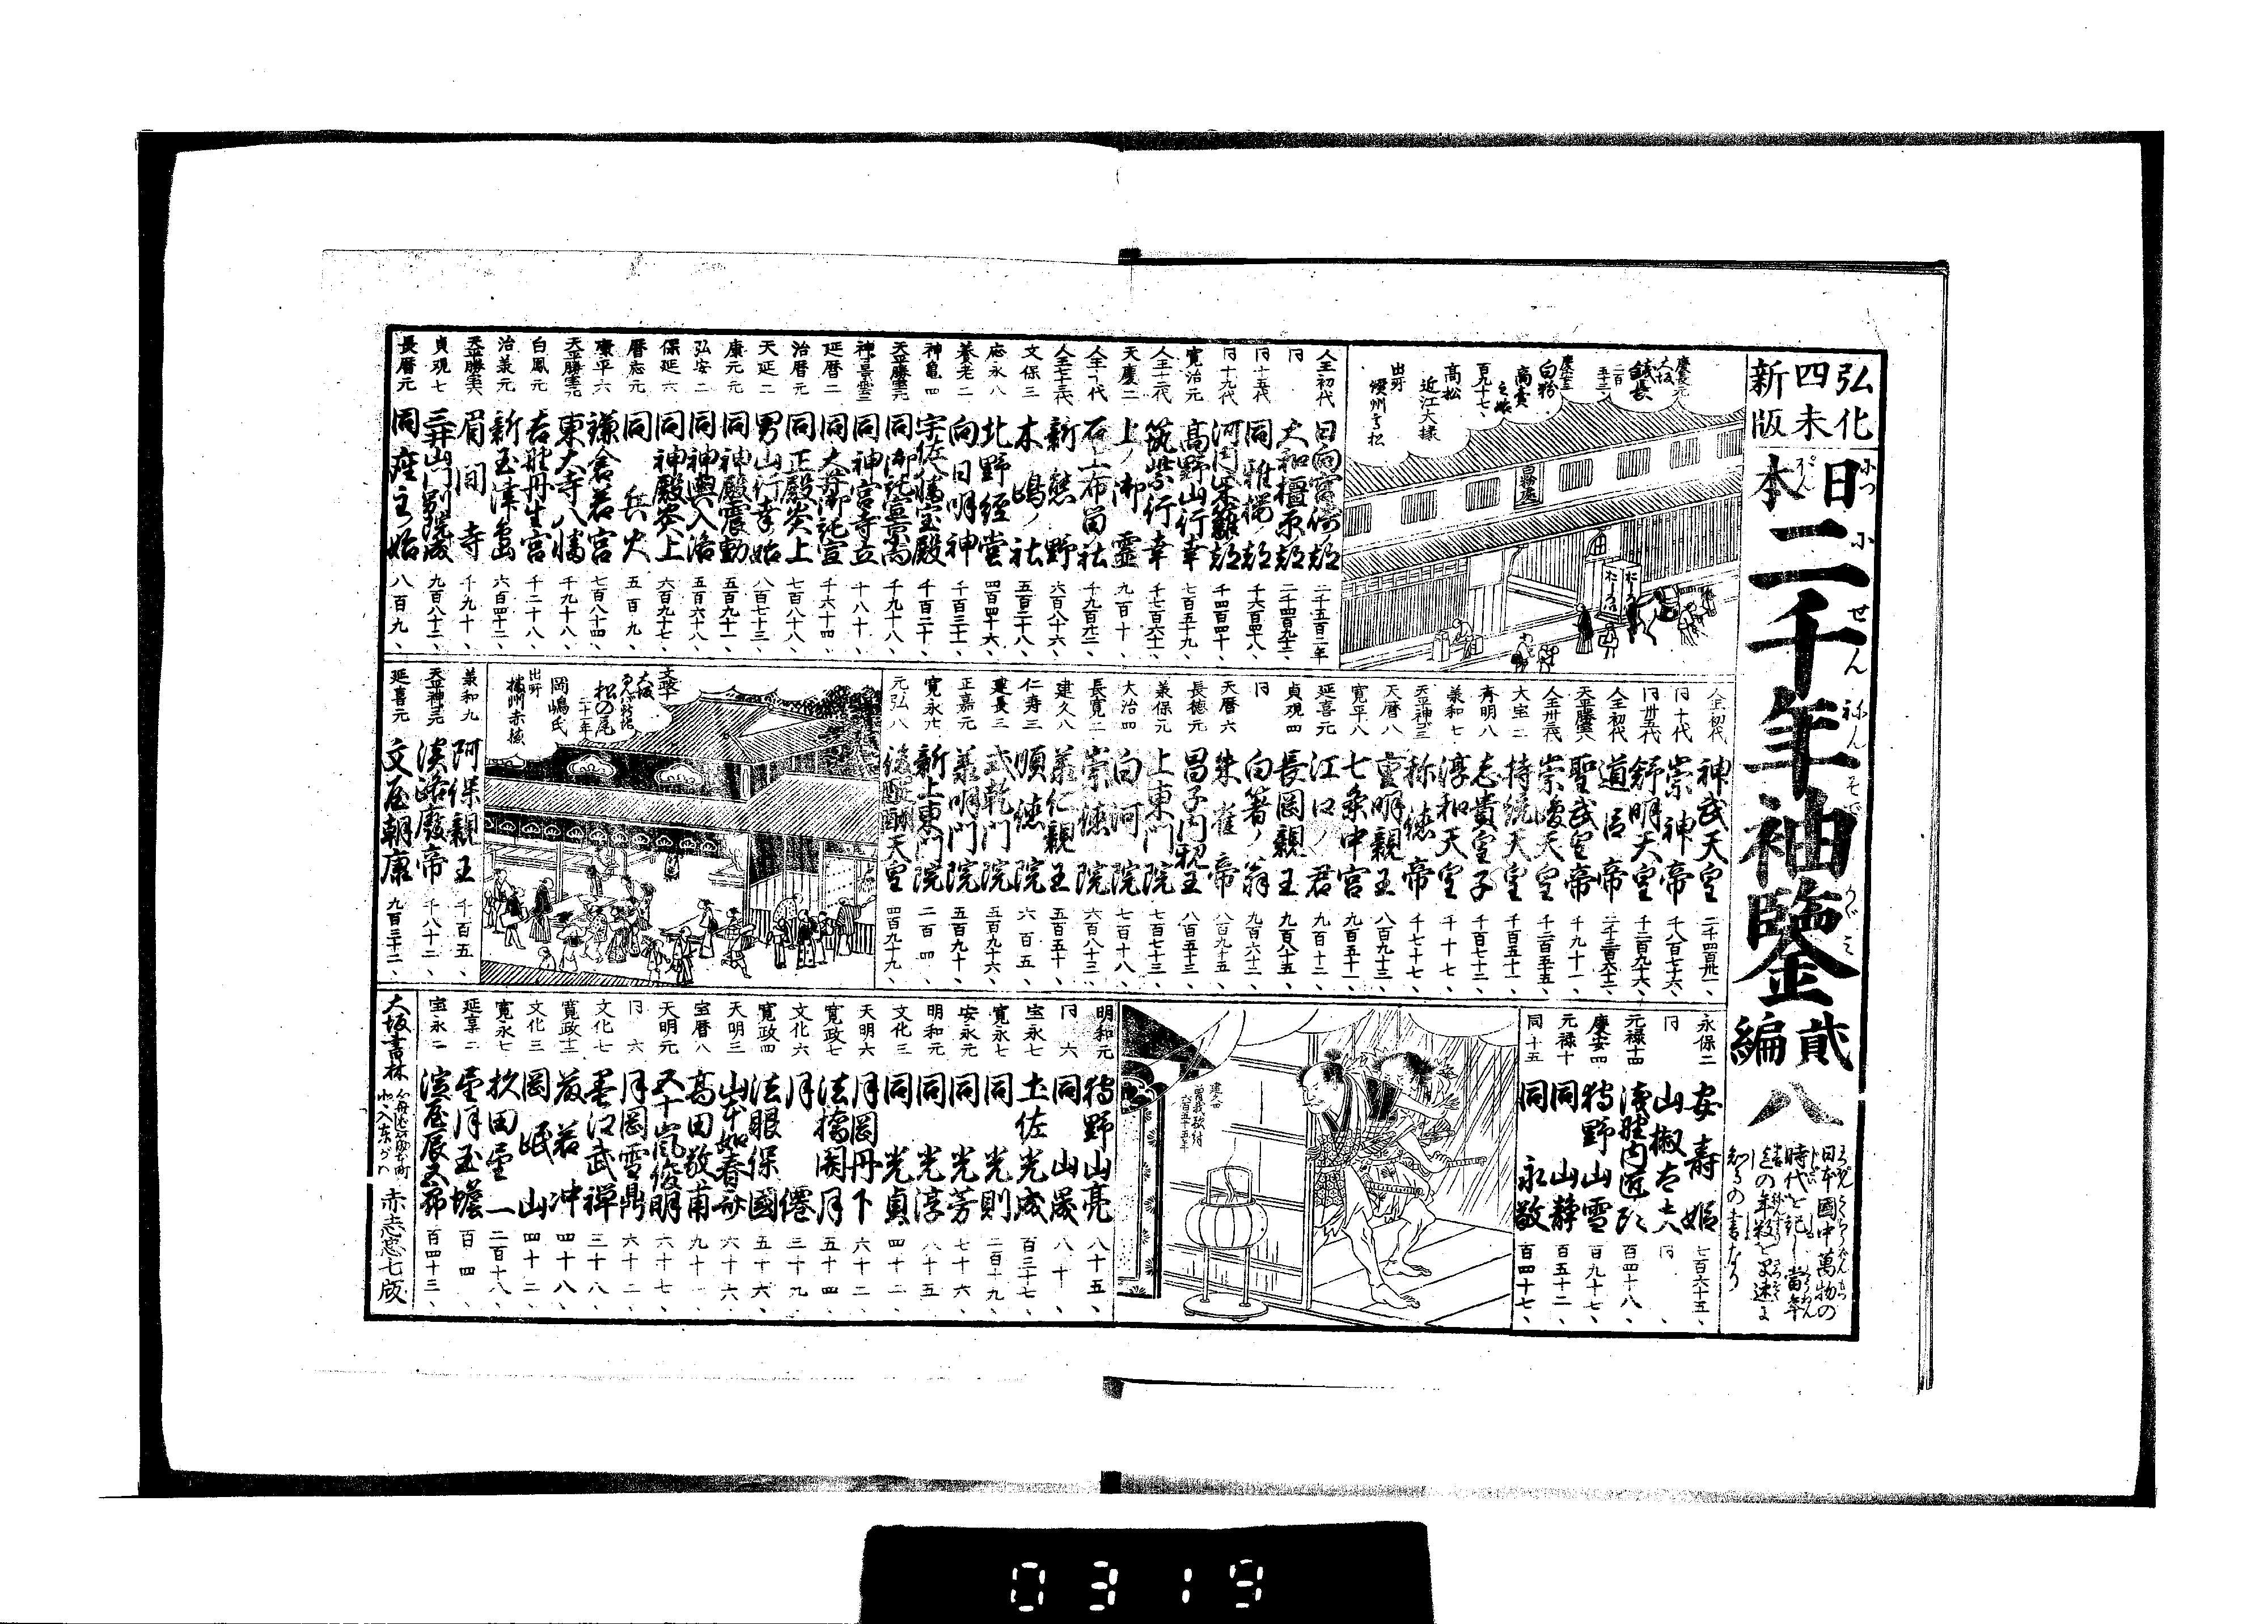 弘化
四未
新版
日本二千年袖鑒
貳編
八
日本國中萬物の
時代を記し當年
迄の年数を早速に
知るの書なり
慶長元
大坂
銭長
二百
五十二、
慶安
白粉
高賣
之始
百九十七、
高松
近江大掾
出所
讃州高松
人王初代 日向宮崎ノ都 二千五百二年
同 大和橿原都 二千四百九十三、
同十五代 同雅桜ノ都 千六百四十八、
同十九代 河内朱籬都 千四百四十、
寛治元 高野山行幸 七百五十九、
人王十二代 筑紫行幸 千七百六十一、
天慶二 上ノ御霊 九百十、
人王十代 石上布留社 千九百三、
人王七十三代 新熊野 六百八十六、
文保三 木嶋ノ社 五百三十八、
応永八 北野経堂 四百四十六、
養老二 向日明神 千百三十、
神亀四 宇佐八幡宝殿 千百二十、
天平勝宝元 同御託宣京高 千九十八、
神護景雲三 同神宮寺立 千八十、
延暦二 同大井御託宣 千六十四、
治暦元 同正殿炎上 七百八十八、
天延二 男山行幸始 八百七十三、
康元元 同神殿震動 五百九十一、
弘安二 同神輿入洛 五百六十八、
保延六 同神殿炎上 六百九十七、
暦応元 同兵火 五百九、
康平六 鎌倉若宮 七百八十四、
天平勝宝元 東大寺八幡 千九十八、
白鳳元 若狭丹生宮 千二十八、
治義元 新玉津島 六百四十二、
天平勝宝 眉間寺 千九十、
貞観七 三井山門別院成 九百八十二、
長暦元 同座主ノ始 八百九、
人王初代 神武天皇 二千四百卅一、
同十代 崇神帝 千八百七十六、
同卅五代 舒明天皇 千二百九十六、
人王初代 道臣帝 二千三百六十二、
天平勝宝八 聖武皇帝 千九十一、
人王卅三代 崇峻天皇 千二百五十五、
大宝二 持統天皇 千百五十一、
斉明八 志貴皇子 千百七十二、
義和七 淳和天皇 千十七、
天平神護三 称徳帝 千七十七、
天暦八 重明親王 八百九十三、
寛平八 七条中宮 九百五十一、
延喜元 江口ノ君 九百十二、
貞観四 長岡親王 九百八十五、
同 白箸ノ翁 九百六十二、
天暦六 朱雀帝 八百九十五、
長徳元 昌子内親王 八百五十三、
義保元 上東門院 七百七十三、
大治四 白河院 七百十八、
長寛二 崇徳院 六百八十三、
建久八 義仁親王 五百五十、
仁寿三 順徳院 六百五、
建長三 式乾門院 五百九十六、
正嘉元 義明門院 五百九十、
寛永九 新上東門院 二百四、
元弘八 後醍醐天皇 四百九十九、
文平
大坂
松の尾
二十二年
岡嶋氏
出所
播州赤穂
義和九 阿保親王 千百五、
天平神元 淡路廢帝 千八十二、
延喜元 文屋朝康 九百三十二、
永保二 安寿姫 七百六十五、
同 山椒太夫 同、
元禄十四 浅野内匠頭 百四十八、
慶安四 狩野山雪 百九十七、
元禄十 同山静 百五十二、
同十五 同永敬 百四十七、
建久四
曽我敵討
六百五十五年
明和元 狩野山亮 八十五、
同六 同山晟 八十、
宝永七 土佐光成 百三十七、
寛永七 同光則 二百十九、
安永元 同光芳 七十六、
明和元 同光淳 八十五、
文化三 同光貞 四十二、
天明六 月岡丹下 六十二、
寛政七 法橋関月 五十四、
文化六 月僊 三十九、
寛政四 法眼保國 五十六、
天明三 山本如春斎 六十六、
宝暦八 高田敬甫 九十一、
天明元 五十嵐俊明 六十七、
同六 月岡雪鼎 六十二、
文化七 墨江武禅 三十八、
寛政十二 蔀若冲 四十八、
文化三 岡岷山 四十二、
寛永七 狄田雲一 二百十八、
延享二 雲月玉蟾 百四、
宝永二 演屋辰五郎 百四十三、
大坂書林
心斎橋備後町
北ヘ入東がハ
赤志忠七版
0319